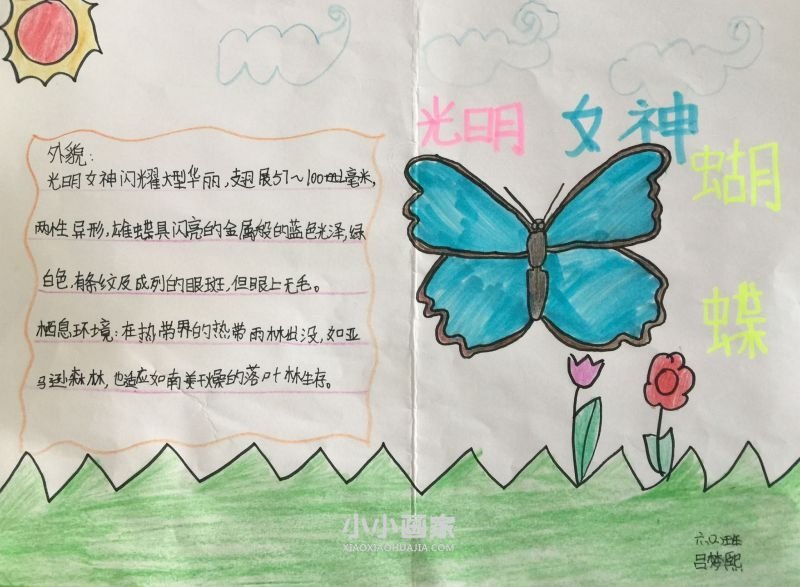 光明 女神
蝴
蝶
外貌:
光明女神闪耀大型华丽,翅展57~100毫米,
两性异形,雄蝶具闪亮的金属般的蓝色光泽,绿
白色,有条纹及成列的眼斑,但眼上无毛。
栖息环境:在热带界的热带雨林出没,如亚
马逊森林,也适应如南美干燥的落叶林生存。
小小画家
XIAOXIAOHUAJIA.COM
吕梦熙